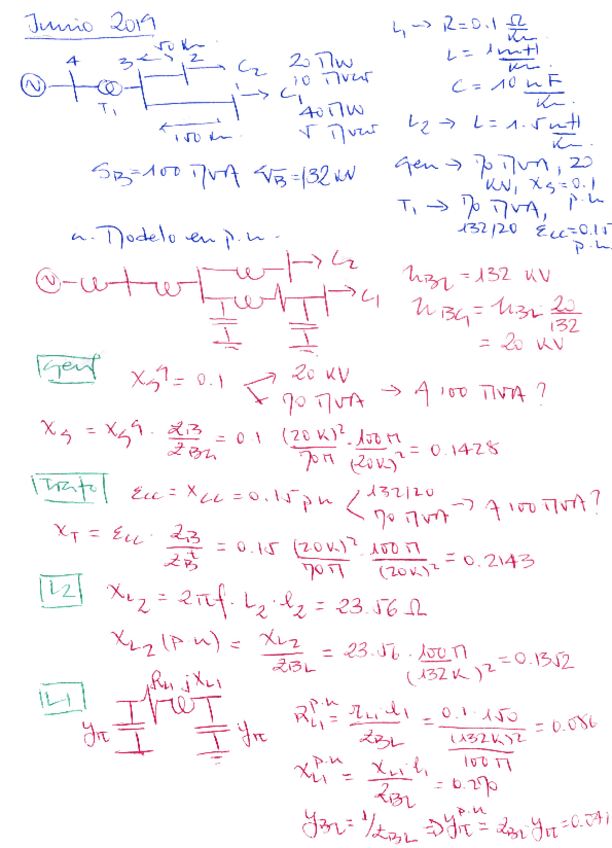 Junio 2019
50 Km
4 3 2 C2 20 MW
10 MVAr
T1 1 C1 40 MW
5 MVAr
150 Km
SB = 100 MVA VB = 132 kV
L1 → R = 0.1 Ω/Km
L = 1 mH/Km
C = 10 nF/Km
L2 → L = 1.5 mH/Km
Gen → 70 MVA, 20 KV, XS = 0.1 p.u
T1 → 70 MVA, 132/20 εcc = 0.15 p.u
a. Modelo en p.u.
C2
C1
UBL = 132 KV
UBG = UBL 20/132
= 20 KV
Gen
XS^g = 0.1 20 KV
70 MVA → A 100 MVA?
XS = XS^g · ZB/ZBL = 0.1 (20K)²/70M · 100M/(20K)² = 0.1428
Trafo
εcc = Xcc = 0.15 p.u 132/20
70 MVA → A 100 MVA?
XT = εcc · ZB/ZB^t = 0.15 (20K)²/70M · 100M/(20K)² = 0.2143
L2
XL2 = 2πf · L2 · l2 = 23.56 Ω
XL2 (p.u) = XL2/ZBL = 23.56 · 100M/(132K)² = 0.1352
L1
RL1 jXL1
Yπ Yπ
RL1^p.u = rL1 · l1/ZBL = 0.1 · 150/((132K)²/100M) = 0.086
XL1^p.u = xL1 · l1/ZBL = 0.270
YBL = 1/ZBL ⇒ Yπ^p.u = ZBL · Yπ = 0.041